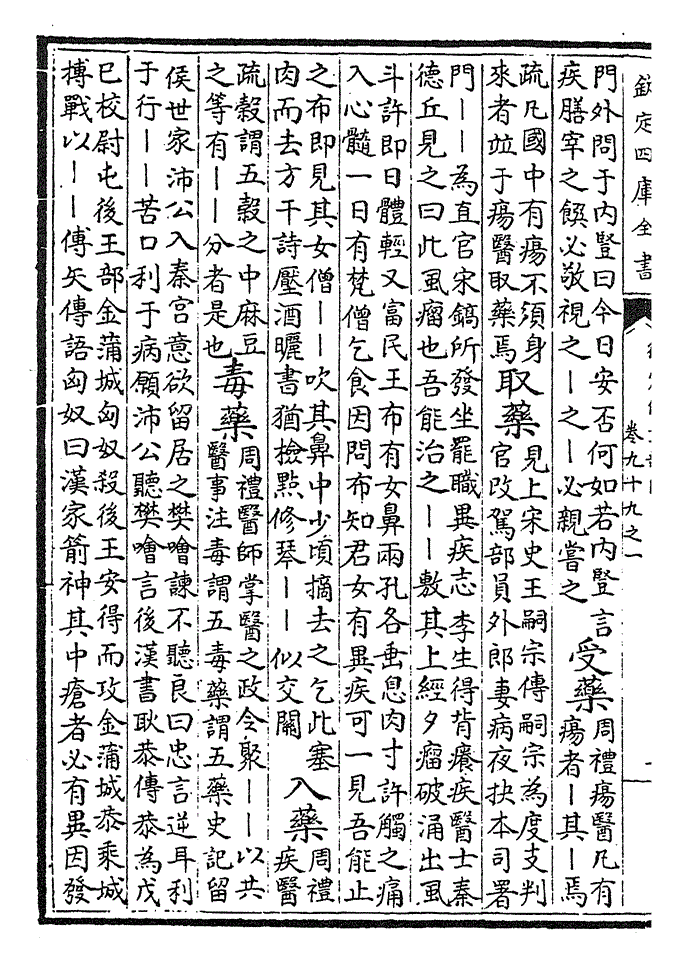 欽定四庫全書
卷九十九之一
門外問于內豎曰今日安否何如若內豎言
疾膳宰之饌必敬視之丨之丨必親嘗之
受藥
周禮瘍醫凡有
瘍者丨其丨焉
疏凡國中有瘍不須身
來者竝于瘍醫取藥焉
取藥
見上宋史王嗣宗傳嗣宗為度支判
官改駕部員外郎妻病夜抉本司署
門丨丨為直官宋鎬所發坐罷職異疾志李生得背癢疾醫士秦
德丘見之曰此虱瘤也吾能治之丨丨敷其上經夕瘤破涌出虱
斗許即日體輕又富民王布有女鼻兩孔各垂息肉寸許觸之痛
入心髓一日有梵僧乞食因問布知君女有異疾可一見吾能止
之布即見其女僧丨丨吹其鼻中少頃摘去之乞此塞
肉而去方干詩壓酒曬書猶撿點修琴丨丨似交關
入藥
周禮
疾醫
疏穀謂五穀之中麻豆
之等有丨丨分者是也
毒藥
周禮醫師掌醫之政令聚丨丨以共
醫事注毒謂五毒藥謂五藥史記留
侯世家沛公入秦宫意欲留居之樊噲諫不聽良曰忠言逆耳利
于行丨丨苦口利于病願沛公聽樊噲言後漢書耿恭傳恭為戊
巳校尉屯後王部金蒲城匈奴殺後王安得而攻金蒲城恭乘城
搏戰以丨丨傅矢傳語匈奴曰漢家箭神其中瘡者必有異因發